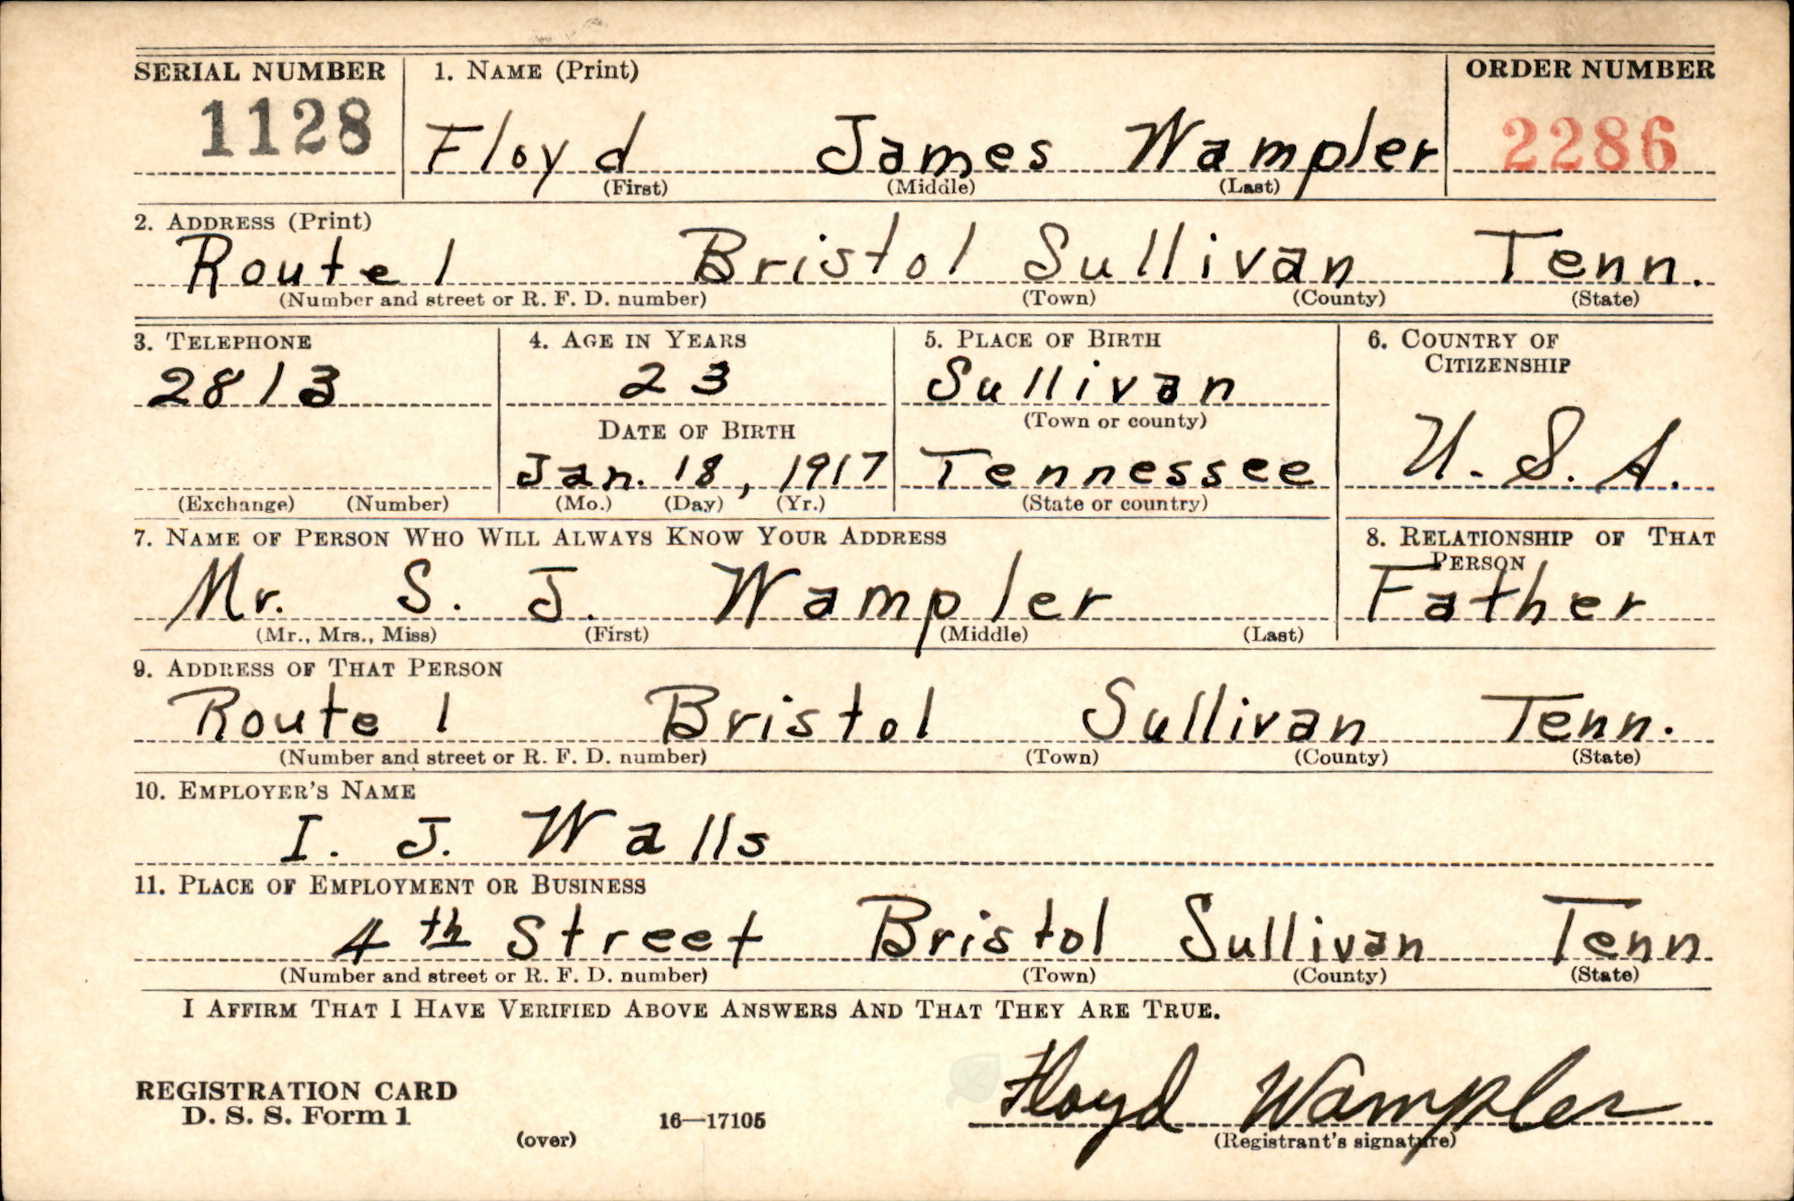 SERIAL NUMBER 1. NAME (Print) ORDER NUMBER
1128 Floyd James Wampler 2286
(First) (Middle) (Last)
2. ADDRESS (Print)
Route 1 Bristol Sullivan Tenn.
(Number and street or R. F. D. number) (Town) (County) (State)
3. TELEPHONE 4. AGE IN YEARS 5. PLACE OF BIRTH 6. COUNTRY OF
CITIZENSHIP
2813 23 Sullivan
(Town or county)
DATE OF BIRTH
Jan. 18, 1917 Tennessee U. S. A.
(Exchange) (Number) (Mo.) (Day) (Yr.) (State or country)
7. NAME OF PERSON WHO WILL ALWAYS KNOW YOUR ADDRESS 8. RELATIONSHIP OF THAT
PERSON
Mr. S. J. Wampler Father
(Mr., Mrs., Miss) (First) (Middle) (Last)
9. ADDRESS OF THAT PERSON
Route 1 Bristol Sullivan Tenn.
(Number and street or R. F. D. number) (Town) (County) (State)
10. EMPLOYER'S NAME
I. J. Walls
11. PLACE OF EMPLOYMENT OR BUSINESS
4th Street Bristol Sullivan Tenn
(Number and street or R. F. D. number) (Town) (County) (State)
I AFFIRM THAT I HAVE VERIFIED ABOVE ANSWERS AND THAT THEY ARE TRUE.
Floyd Wampler
REGISTRATION CARD
D. S. S. Form 1 16—17105
(over) (Registrant's signature)